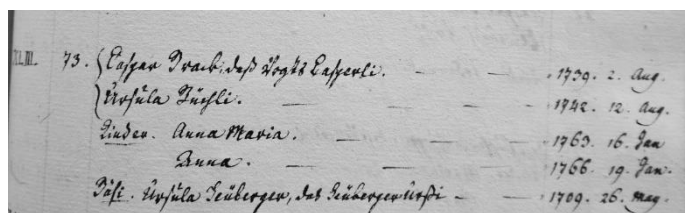 XLIII. 73. Caspar Drack, deß Vogts Casperli. — — 1739. 2. Aug.
Ursula Büchli. — — — 1742. 12. Aug.
Kinder. Anna Maria. — — 1763. 16. Jan
Anna. — — — 1766. 19. Jan.
Bäsi. Ursula Deüberger, des Deüberger Urßi — — 1709. 26. May.